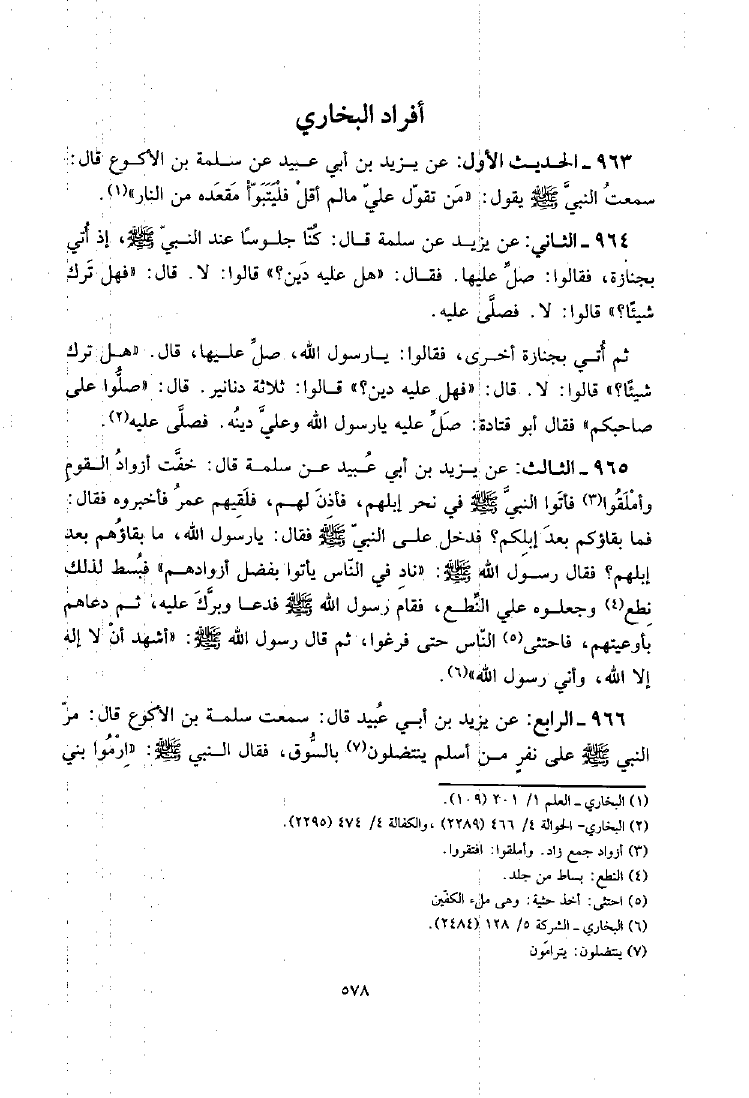 أفراد البخاري
٩٦٣ ـ الحديث الأول: عن يزيد بن أبي عبيد عن سلمة بن الأكوع قال:
سمعتُ النبيَّ ﷺ يقول: «مَن تقوّل عليّ مالم أقلْ فلْيَتَبَوَّأْ مَقعَده من النار»(١).
٩٦٤ ـ الثاني: عن يزيد عن سلمة قال: كُنّا جلوسًا عند النبيّ ﷺ، إذ أُتي
بجنازة، فقالوا: صلِّ عليها. فقال: «هل عليه دَين؟» قالوا: لا. قال: «فهل تَرك
شيئًا؟» قالوا: لا. فصلَّى عليه.
ثم أُتي بجنازة أخرى، فقالوا: يارسول الله، صلِّ عليها، قال. «هل ترك
شيئًا؟» قالوا: لا. قال: «فهل عليه دين؟» قالوا: ثلاثة دنانير. قال: «صلُّوا على
صاحبكم» فقال أبو قتادة: صَلِّ عليه يارسول الله وعليَّ دينُه. فصلَّى عليه(٢).
٩٦٥ ـ الثالث: عن يزيد بن أبي عُبيد عن سلمة قال: خفَّت أزوادُ القوم
وأمْلَقُوا(٣) فأتَوا النبيَّ ﷺ في نحر إبلهم، فأذِنَ لهم، فلَقِيهم عمرُ فأخبروه فقال:
فما بقاؤكم بعدَ إبلِكم؟ فدخل على النبيّ ﷺ فقال: يارسول الله، ما بقاؤُهم بعد
إبلهم؟ فقال رسول الله ﷺ: «نادِ في النّاس يأتوا بفضل أزوادهم» فبُسط لذلك
نِطع(٤) وجعلوه علي النِّطع، فقام رسول الله ﷺ فدعا وبرَّكَ عليه، ثم دعاهم
بأوعيتهم، فاحتثى(٥) النّاس حتى فرغوا، ثم قال رسول الله ﷺ: «أشهد أنْ لا إله
إلا الله، وأني رسول الله»(٦).
٩٦٦ ـ الرابع: عن يزيد بن أبي عُبيد قال: سمعت سلمة بن الأكوع قال: مرّ
النبي ﷺ على نفرٍ من أسلم ينتضلون(٧) بالسُّوق، فقال النبي ﷺ: «اِرْمُوا بني
(١) البخاري ـ العلم ١/ ٢٠١ (١٠٩).
(٢) البخاري- الحوالة ٤/ ٤٦٦ (٢٢٨٩) ،والكفالة ٤/ ٤٧٤ (٢٢٩٥).
(٣) أزواد جمع زاد. وأملقوا: افتقروا.
(٤) النطع: بساط من جلد.
(٥) احتثى: أخذ حثية: وهى ملء الكفّين
(٦) البخاري ـ الشركة ٥/ ١٢٨ (٢٤٨٤).
(٧) ينتضلون: يترامَون
٥٧٨